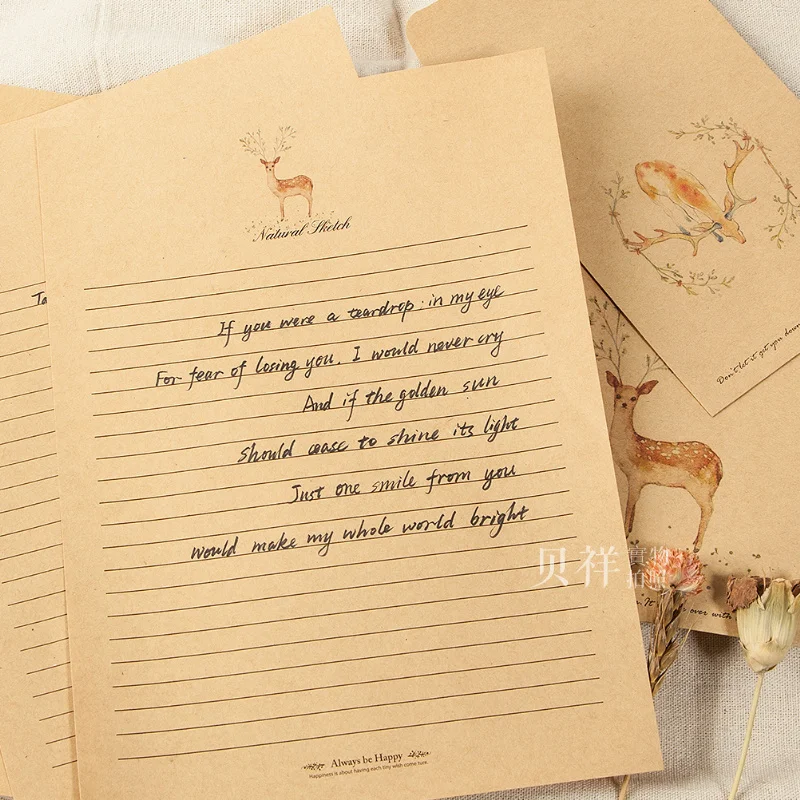 Natural Sketch
To
If you were a teardrop in my eye
For fear of losing you, I would never cry
And if the golden sun
should cease to shine its light
Just one smile from you
would make my whole world bright
Always be Happy
Happiness is about having each tiny wish come true.
Don't let it get you down
贝祥 實物拍照
It over with